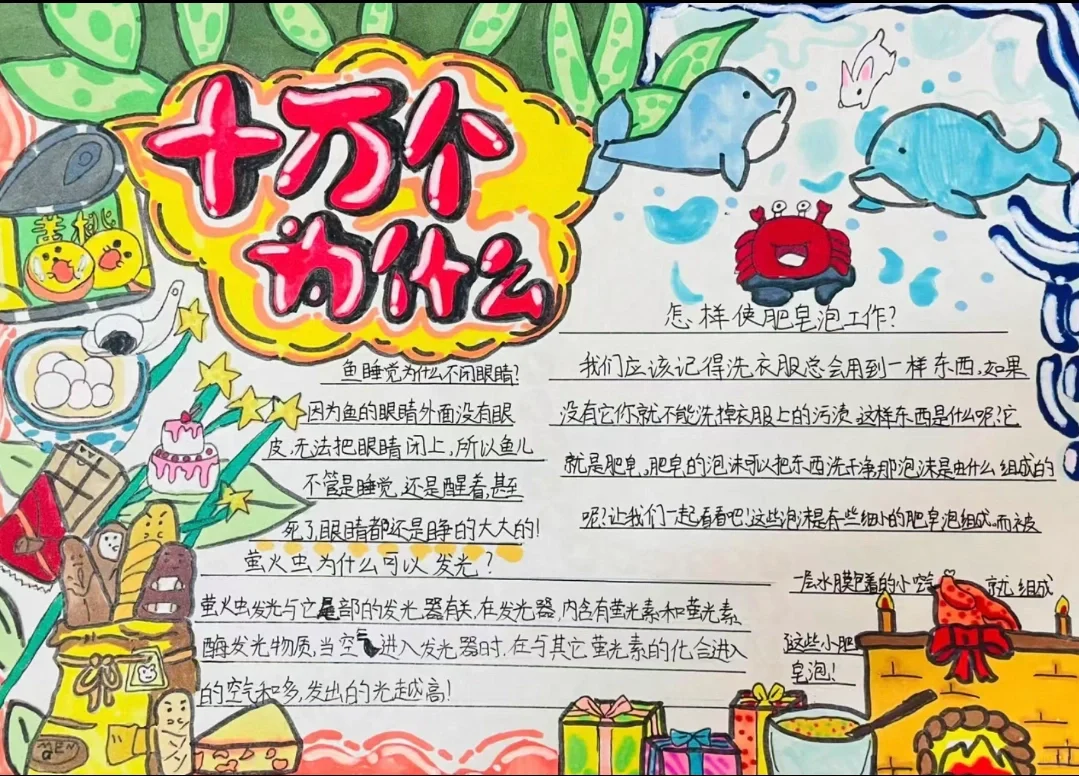 十万个
为什么
黄桃
鱼睡觉为什么不闭眼睛?
因为鱼的眼睛外面没有眼
皮,无法把眼睛闭上,所以鱼儿
不管是睡觉,还是醒着,甚至
死了,眼睛都还是睁的大大的!
萤火虫为什么可以发光?
萤火虫发光与它尾部的发光器有关,在发光器,内含有萤光素和萤光素
酶发光物质,当空气进入发光器时,在与其它萤光素的化合进入
的空气和多,发出的光越高!
怎样使肥皂泡工作?
我们应该记得洗衣服总会用到一样东西,如果
没有它你就不能洗掉衣服上的污渍,这样东西是什么呢?它
就是肥皂,肥皂的泡沫可以把东西洗干净,那泡沫是由什么组成的
呢?让我们一起看看吧!这些泡沫是有些细小的肥皂泡组成。而被
一层水膜包着的小空气 就组成
这些小肥
皂泡!